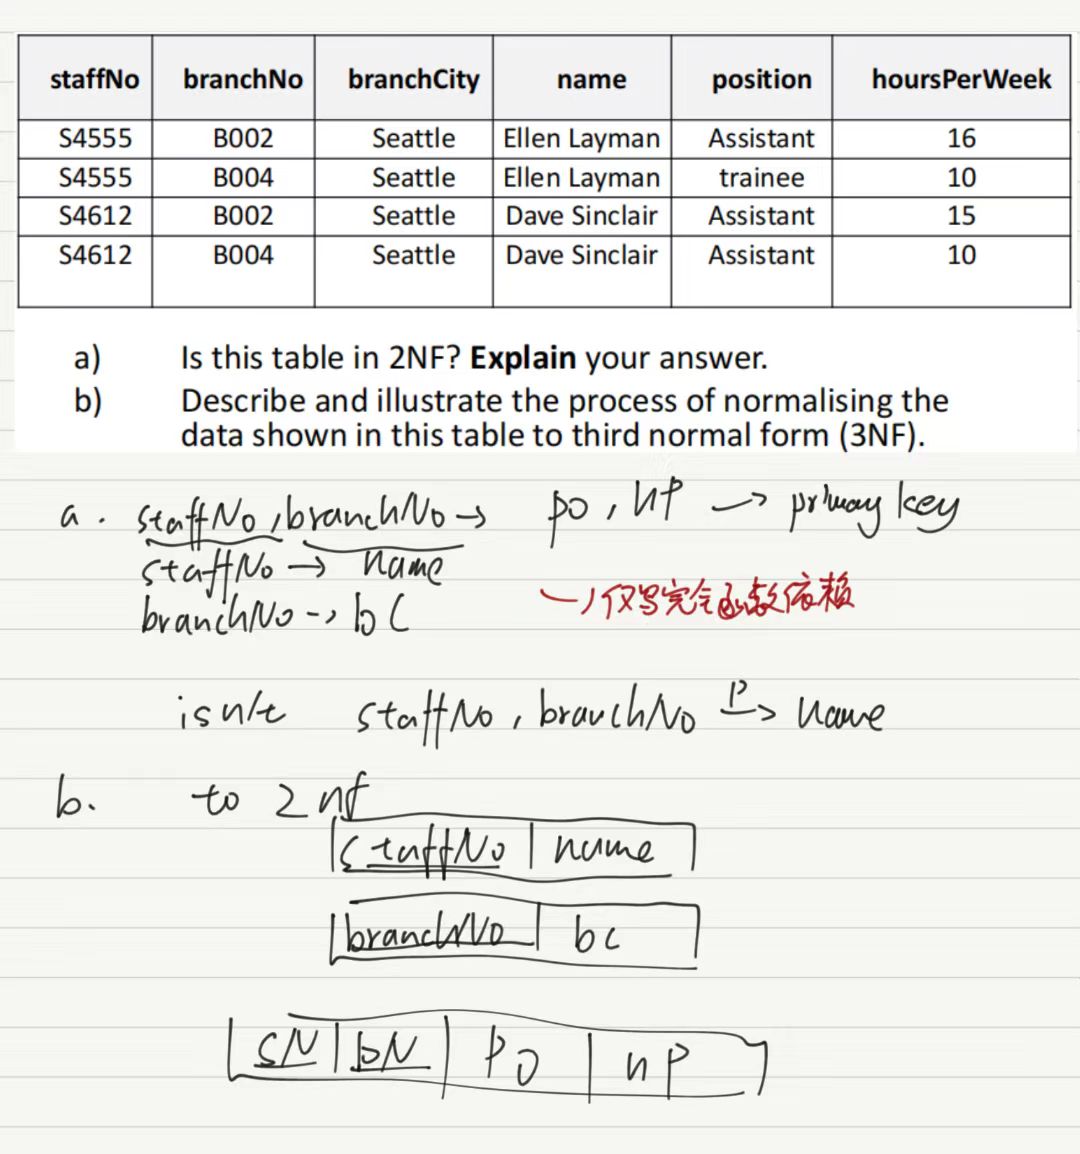 staffNo branchNo branchCity name position hoursPerWeek
S4555 B002 Seattle Ellen Layman Assistant 16
S4555 B004 Seattle Ellen Layman trainee 10
S4612 B002 Seattle Dave Sinclair Assistant 15
S4612 B004 Seattle Dave Sinclair Assistant 10
a) Is this table in 2NF? Explain your answer.
b) Describe and illustrate the process of normalising the
data shown in this table to third normal form (3NF).
a. staffNo, branchNo → po, hP → primary key
staffNo → name
branchNo → bC
→ 仅写完全函数依赖
isn't staffNo, branchNo P→ name
b. to 2nf
staffNo | name
branchNo | bc
sN | bN | po | hP